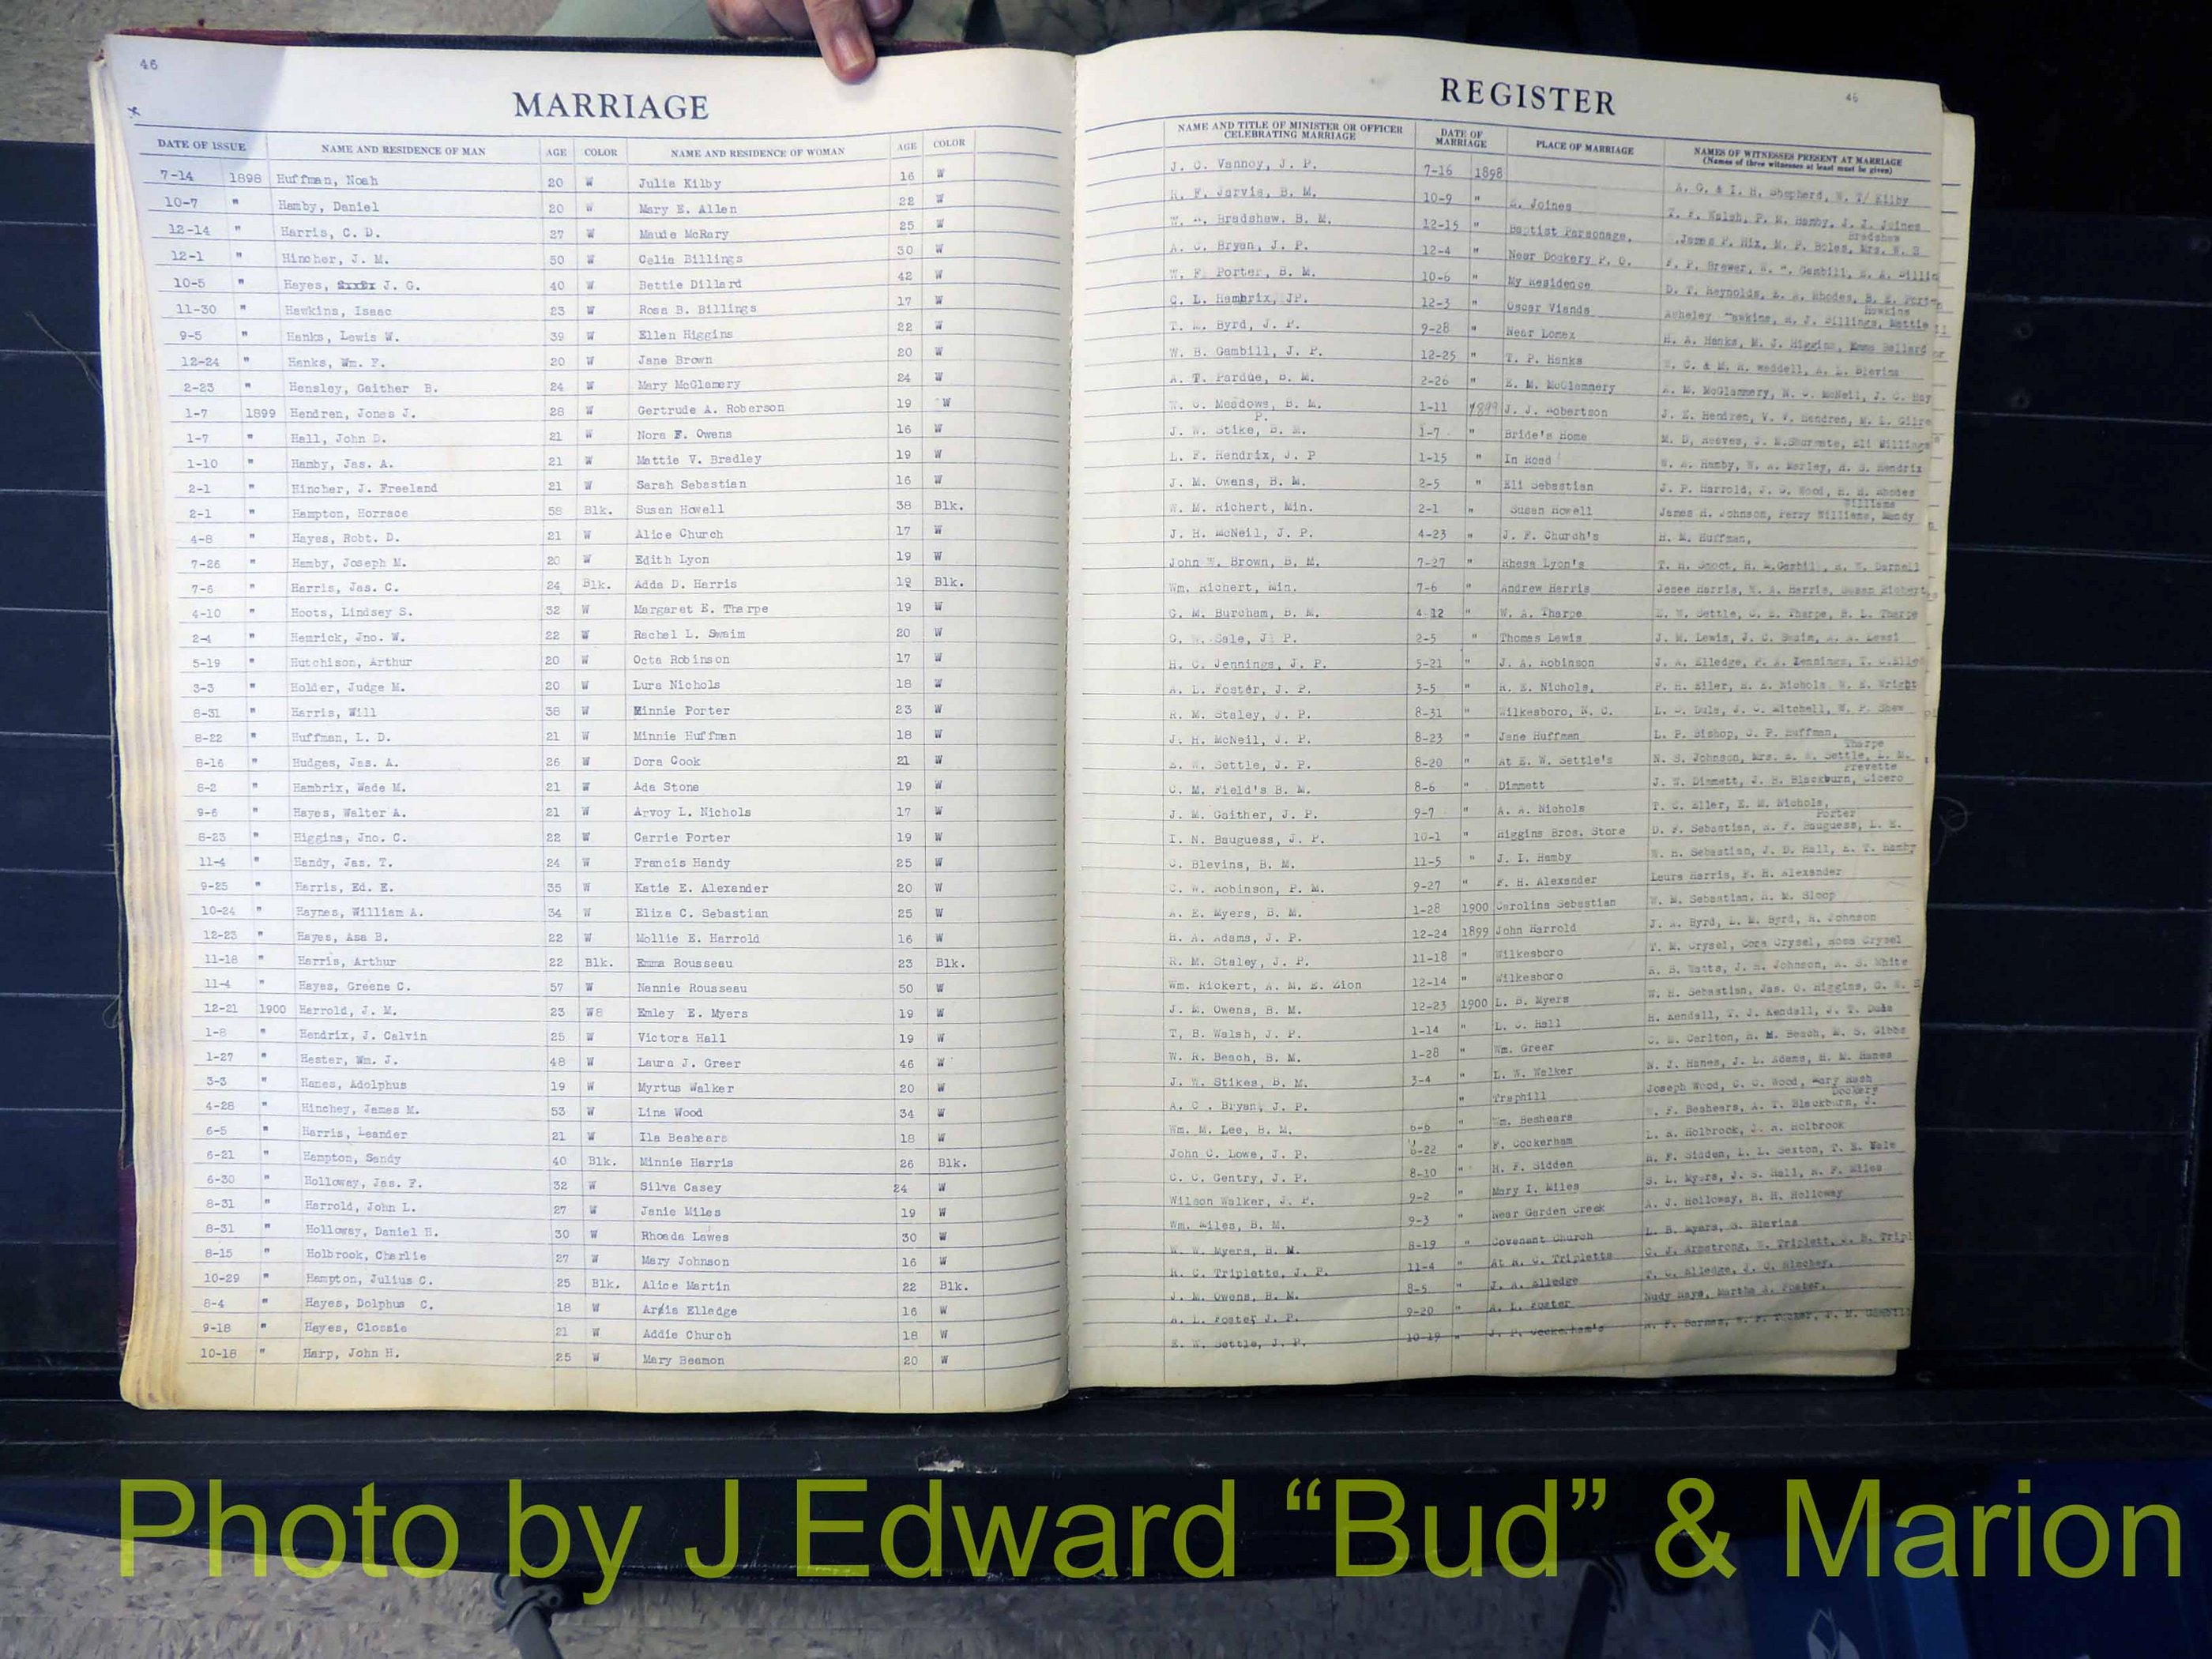 46
MARRIAGE
DATE OF ISSUE NAME AND RESIDENCE OF MAN AGE COLOR NAME AND RESIDENCE OF WOMAN AGE COLOR
7-14 1898 Huffman, Noah 20 W Julia Kilby 16 W
10-7 " Hamby, Daniel 20 W Mary E. Allen 22 W
12-14 " Harris, C. D. 27 W Maude McRary 25 W
12-1 " Hincher, J. M. 50 W Celia Billings 30 W
10-5 " Hayes, J. G. 40 W Bettie Dillard 42 W
11-30 " Hawkins, Isaac 23 W Rosa B. Billings 17 W
9-5 " Hanks, Lewis W. 39 W Ellen Higgins 22 W
12-24 " Hanks, Wm. F. 20 W Jane Brown 20 W
2-23 " Hensley, Gaither B. 24 W Mary McGlamery 24 W
1-7 1899 Hendren, Jones J. 28 W Gertrude A. Roberson 19 W
1-7 " Hall, John D. 21 W Nora F. Owens 16 W
1-10 " Hamby, Jas. A. 21 W Mattie V. Bradley 19 W
2-1 " Hincher, J. Freeland 21 W Sarah Sebastian 16 W
2-1 " Hampton, Horrace 58 Blk. Susan Howell 38 Blk.
4-8 " Hayes, Robt. D. 21 W Alice Church 17 W
7-26 " Hamby, Joseph M. 20 W Edith Lyon 19 W
7-6 " Harris, Jas. C. 24 Blk. Adda D. Harris 19 Blk.
4-10 " Hoots, Lindsey S. 32 W Margaret E. Tharpe 19 W
2-4 " Hemrick, Jno. W. 22 W Rachel L. Swaim 20 W
5-19 " Hutchison, Arthur 20 W Octa Robinson 17 W
3-3 " Holder, Judge M. 20 W Lura Nichols 18 W
8-31 " Harris, Will 38 W Minnie Porter 23 W
8-22 " Huffman, L. D. 21 W Minnie Huffman 18 W
8-16 " Hudges, Jas. A. 26 W Dora Cook 21 W
8-2 " Hambrix, Wade M. 21 W Ada Stone 19 W
9-6 " Hayes, Walter A. 21 W Arvoy L. Nichols 17 W
8-23 " Higgins, Jno. C. 22 W Carrie Porter 19 W
11-4 " Handy, Jas. T. 24 W Francis Handy 25 W
9-25 " Harris, Ed. E. 35 W Katie E. Alexander 20 W
10-24 " Haynes, William A. 34 W Eliza C. Sebastian 25 W
12-23 " Hayes, Asa B. 22 W Mollie E. Harrold 16 W
11-18 " Harris, Arthur 22 Blk. Emma Rousseau 23 Blk.
11-4 " Hayes, Greene C. 57 W Nannie Rousseau 50 W
12-21 1900 Harrold, J. M. 23 W8 Emley E. Myers 19 W
1-8 " Hendrix, J. Calvin 25 W Victora Hall 19 W
1-27 " Hester, Wm. J. 48 W Laura J. Greer 46 W
3-3 " Hanes, Adolphus 19 W Myrtus Walker 20 W
4-28 " Hinchey, James M. 53 W Lina Wood 34 W
6-5 " Harris, Leander 21 W Ila Beshears 18 W
6-21 " Hampton, Sandy 40 Blk. Minnie Harris 26 Blk.
6-30 " Holloway, Jas. F. 32 W Silva Casey 24 W
8-31 " Harrold, John L. 27 W Janie Miles 19 W
8-31 " Holloway, Daniel H. 30 W Rhoada Lawes 30 W
8-15 " Holbrook, Charlie 27 W Mary Johnson 16 W
10-29 " Hampton, Julius C. 25 Blk. Alice Martin 22 Blk.
8-4 " Hayes, Dolphus C. 18 W Artis Elledge 16 W
9-18 " Hayes, Clossie 21 W Addie Church 18 W
10-18 " Harp, John H. 25 W Mary Beamon 20 W
REGISTER 46
NAME AND TITLE OF MINISTER OR OFFICER CELEBRATING MARRIAGE DATE OF MARRIAGE PLACE OF MARRIAGE NAMES OF WITNESSES PRESENT AT MARRIAGE
(Names of three witnesses at least must be given)
J. C. Vannoy, J. P. 7-16 1898 A. G. & I. H. Shepherd, W. T/ Kilby
R. F. Jarvis, B. M. 10-9 " A. Joines T. F. Walsh, P. M. Hamby, J. J. Joines
W. Bradshaw, B. M. 12-15 " Baptist Parsonage, James P. Hix, M. P. Boles, Mrs. W. S Bradshaw
A. C. Bryan, J. P. 12-4 " Near Dockery P. O. F. P. Brewer, Gambill,
W. F. Porter, B. M. 10-6 " My Residence D. T. Reynolds, Rhodes,
C. L. Hambrix, JP. 12-3 " Oscar Viands Hawkins, Billings, Mattie Hawkins
T. M. Byrd, J. P. 9-28 " Near Lomax H. A. Hanks, M. J. Higgins, Emma Ballard
W. B. Gambill, J. P. 12-25 " T. P. Hanks W. C. & M. R. Waddell, A. L. Blevins
A. T. Pardue, B. M. 2-26 " E. M. McGlammery A. M. McGlammery, N. C. McNeil, J. C. Hay
W. C. Meadows, B. M. 1-11 1899 J. J. Robertson J. E. Hendren, V. V. Hendren, M. L. Gilre
P.
J. W. Stike, B. M. 1-7 " Bride's Home M. D, Reeves, Eli Billings
L. F. Hendrix, J. P 1-15 " In Road W. A. Hamby, W. A. Marley, H. S. Hendrix
J. M. Owens, B. M. 2-5 " Eli Sebastian J. P. Harrold, J. G. Wood, H. H. Rhodes
W. M. Richert, Min. 2-1 " Susan Howell James H. Johnson, Perry Williams, Mandy Williams
J. H. McNeil, J. P. 4-23 " J. F. Church's H. M. Huffman,
John W. Brown, B. M. 7-27 " Rhesa Lyon's T. H. Smoot,
Wm. Richert, Min. 7-6 " Andrew Harris Jesee Harris, W. A. Harris, Susan Richert
G. M. Burcham, B. M. 4 12 " W. A. Tharpe E. W. Settle, C. E. Tharpe, B. L. Tharpe
G. W. Sale, J P. 2-5 " Thomas Lewis J. M. Lewis, J. C. Swaim, A. A. Lewsi
H. C. Jennings, J. P. 5-21 " J. A. Robinson J. A. Elledge, F. A. Jennings,
A. L. Foster, J. P. 3-5 " R. E. Nichols, P. H. Eller, R. E. Nichols W. E. Wright
R. M. Staley, J. P. 8-31 " Wilkesboro, N. C. L. Dula, J. C. Mitchell, W. P. Shew
J. H. McNeil, J. P. 8-23 " Jane Huffman L. P. Bishop, C. P. Huffman,
E. W. Settle, J. P. 8-20 " At E. W. Settle's N. S. Johnson, Mrs. E. W. Settle, L. M. Tharpe
C. M. Field's B. M. 8-6 " Dimmett J. W. Dimmett, J. H. Blackburn, Cicero Prevette
J. M. Gaither, J. P. 9-7 " A. A. Nichols T. C. Eller, E. M. Nichols,
I. N. Bauguess, J. P. 10-1 " Higgins Bros. Store D. F. Sebastian, R. F. Bauguess, L. E. Porter
C. Blevins, B. M. 11-5 " J. I. Hamby W. H. Sebastian, J. D. Hall, Hamby
C. W. Robinson, P. M. 9-27 " F. H. Alexander Laura Harris, F. H. Alexander
A. E. Myers, B. M. 1-28 1900 Carolina Sebastian W. M. Sebastian, H. M. Sloop
H. A. Adams, J. P. 12-24 1899 John Harrold J. A. Byrd, L. M. Byrd, H. Johnson
R. M. Staley, J. P. 11-18 " Wilkesboro T. M. Crysel, Cora Crysel, Rosa Crysel
Wm. Rickert, A. M. E. Zion 12-14 " Wilkesboro R. B. Watts, J. H. Johnson, R. S. White
J. M. Owens, B. M. 12-23 1900 L. B. Myers W. H. Sebastian, Jas. O. Higgins, G. W.
T, B. Walsh, J. P. 1-14 " L. C. Hall H. Kendall, T. J. Kendall, J. T. Dula
W. R. Beach, B. M. 1-28 " Wm. Greer C. E. Carlton, R. M. Beach, M. S. Gibbs
J. W. Stikes, B. M. 3-4 " L. W. Walker N. J. Hanes, J. L. Adams, H. M. Hanes
A. C . Bryan, J. P. " Traphill Joseph Wood, C. C. Wood, Mary Hash
Wm. M. Lee, B. M. 6-6 " Wm. Beshears W. F. Beshears, A. T. Blackburn, J. Dockery
John C. Lowe, J. P. 6-22 " F. Cockerham L. R. Holbrook, J. A. Holbrook
C. C. Gentry, J. P. 8-10 " H. F. Sidden R. F. Sidden, L. L. Sexton,
Wilson Walker, J. P. 9-2 " Mary I. Miles S. L. Myers, J. S. Hall, R. F. Miles
Wm. Miles, B. M. 9-3 " Near Garden Creek A. J. Holloway, B. H. Holloway
W. W. Myers, B. M. 8-19 " Covenant Church L. B. Myers, S. Blevins
R. C. Triplette, J. P. 11-4 " At R. C. Tripletts C. J. Armstrong, Triplett,
J. M. Owens, B. M. 8-5 " J. A. Alledge T. C. Alledge,
A. L. Foster J. P. 9-20 " A. L. Foster Rudy Hays, Martha A. Foster,
E. W. Settle, J. P. 10-19 " J. P. Cockerham's
Photo by J Edward “Bud” & Marion